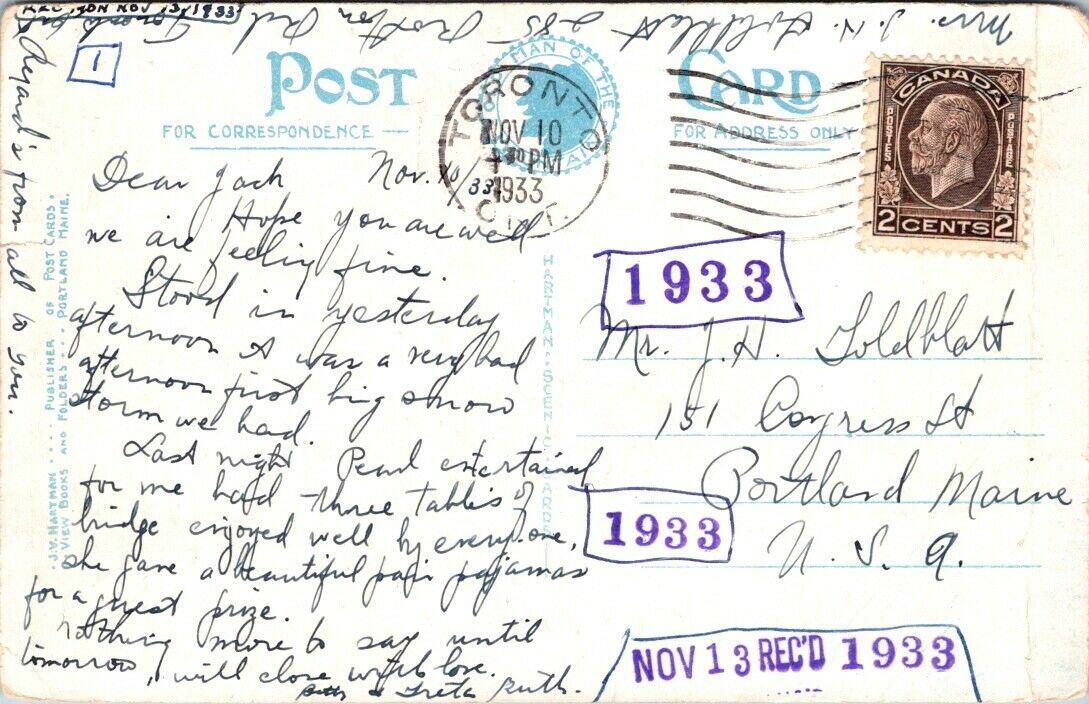 REC'D MON NOV 13, 1933
Mrs. J. H. Goldblatt 285
1
POST CARD
MAN OF THE
FOR CORRESPONDENCE
FOR ADDRESS ONLY
TORONTO
NOV 10
PM
1933
ONT.
CANADA
POSTES POSTAGE
2 CENTS 2
Dear Jack Nov. 10/33
Hope you are well
we are feeling fine.
Stood in yesterday
afternoon it was a very bad
afternoon first big snow
storm we had.
Last night Pearl entertained
for me had three tables of
bridge enjoyed well by everyone,
she gave a beautiful pair pajamas
for a guest prize.
Nothing more to say until
tomorrow, will close with love.
Ruth.
Regards from all to you.
J.V. HARTMAN PUBLISHER OF POST CARDS.
VIEW BOOKS AND FOLDERS PORTLAND MAINE.
HARTMAN SCENIC CARDS
1933
Mr. J. H. Goldblatt
151 Congress St
Portland Maine
1933
U. S. A.
NOV 13 REC'D 1933